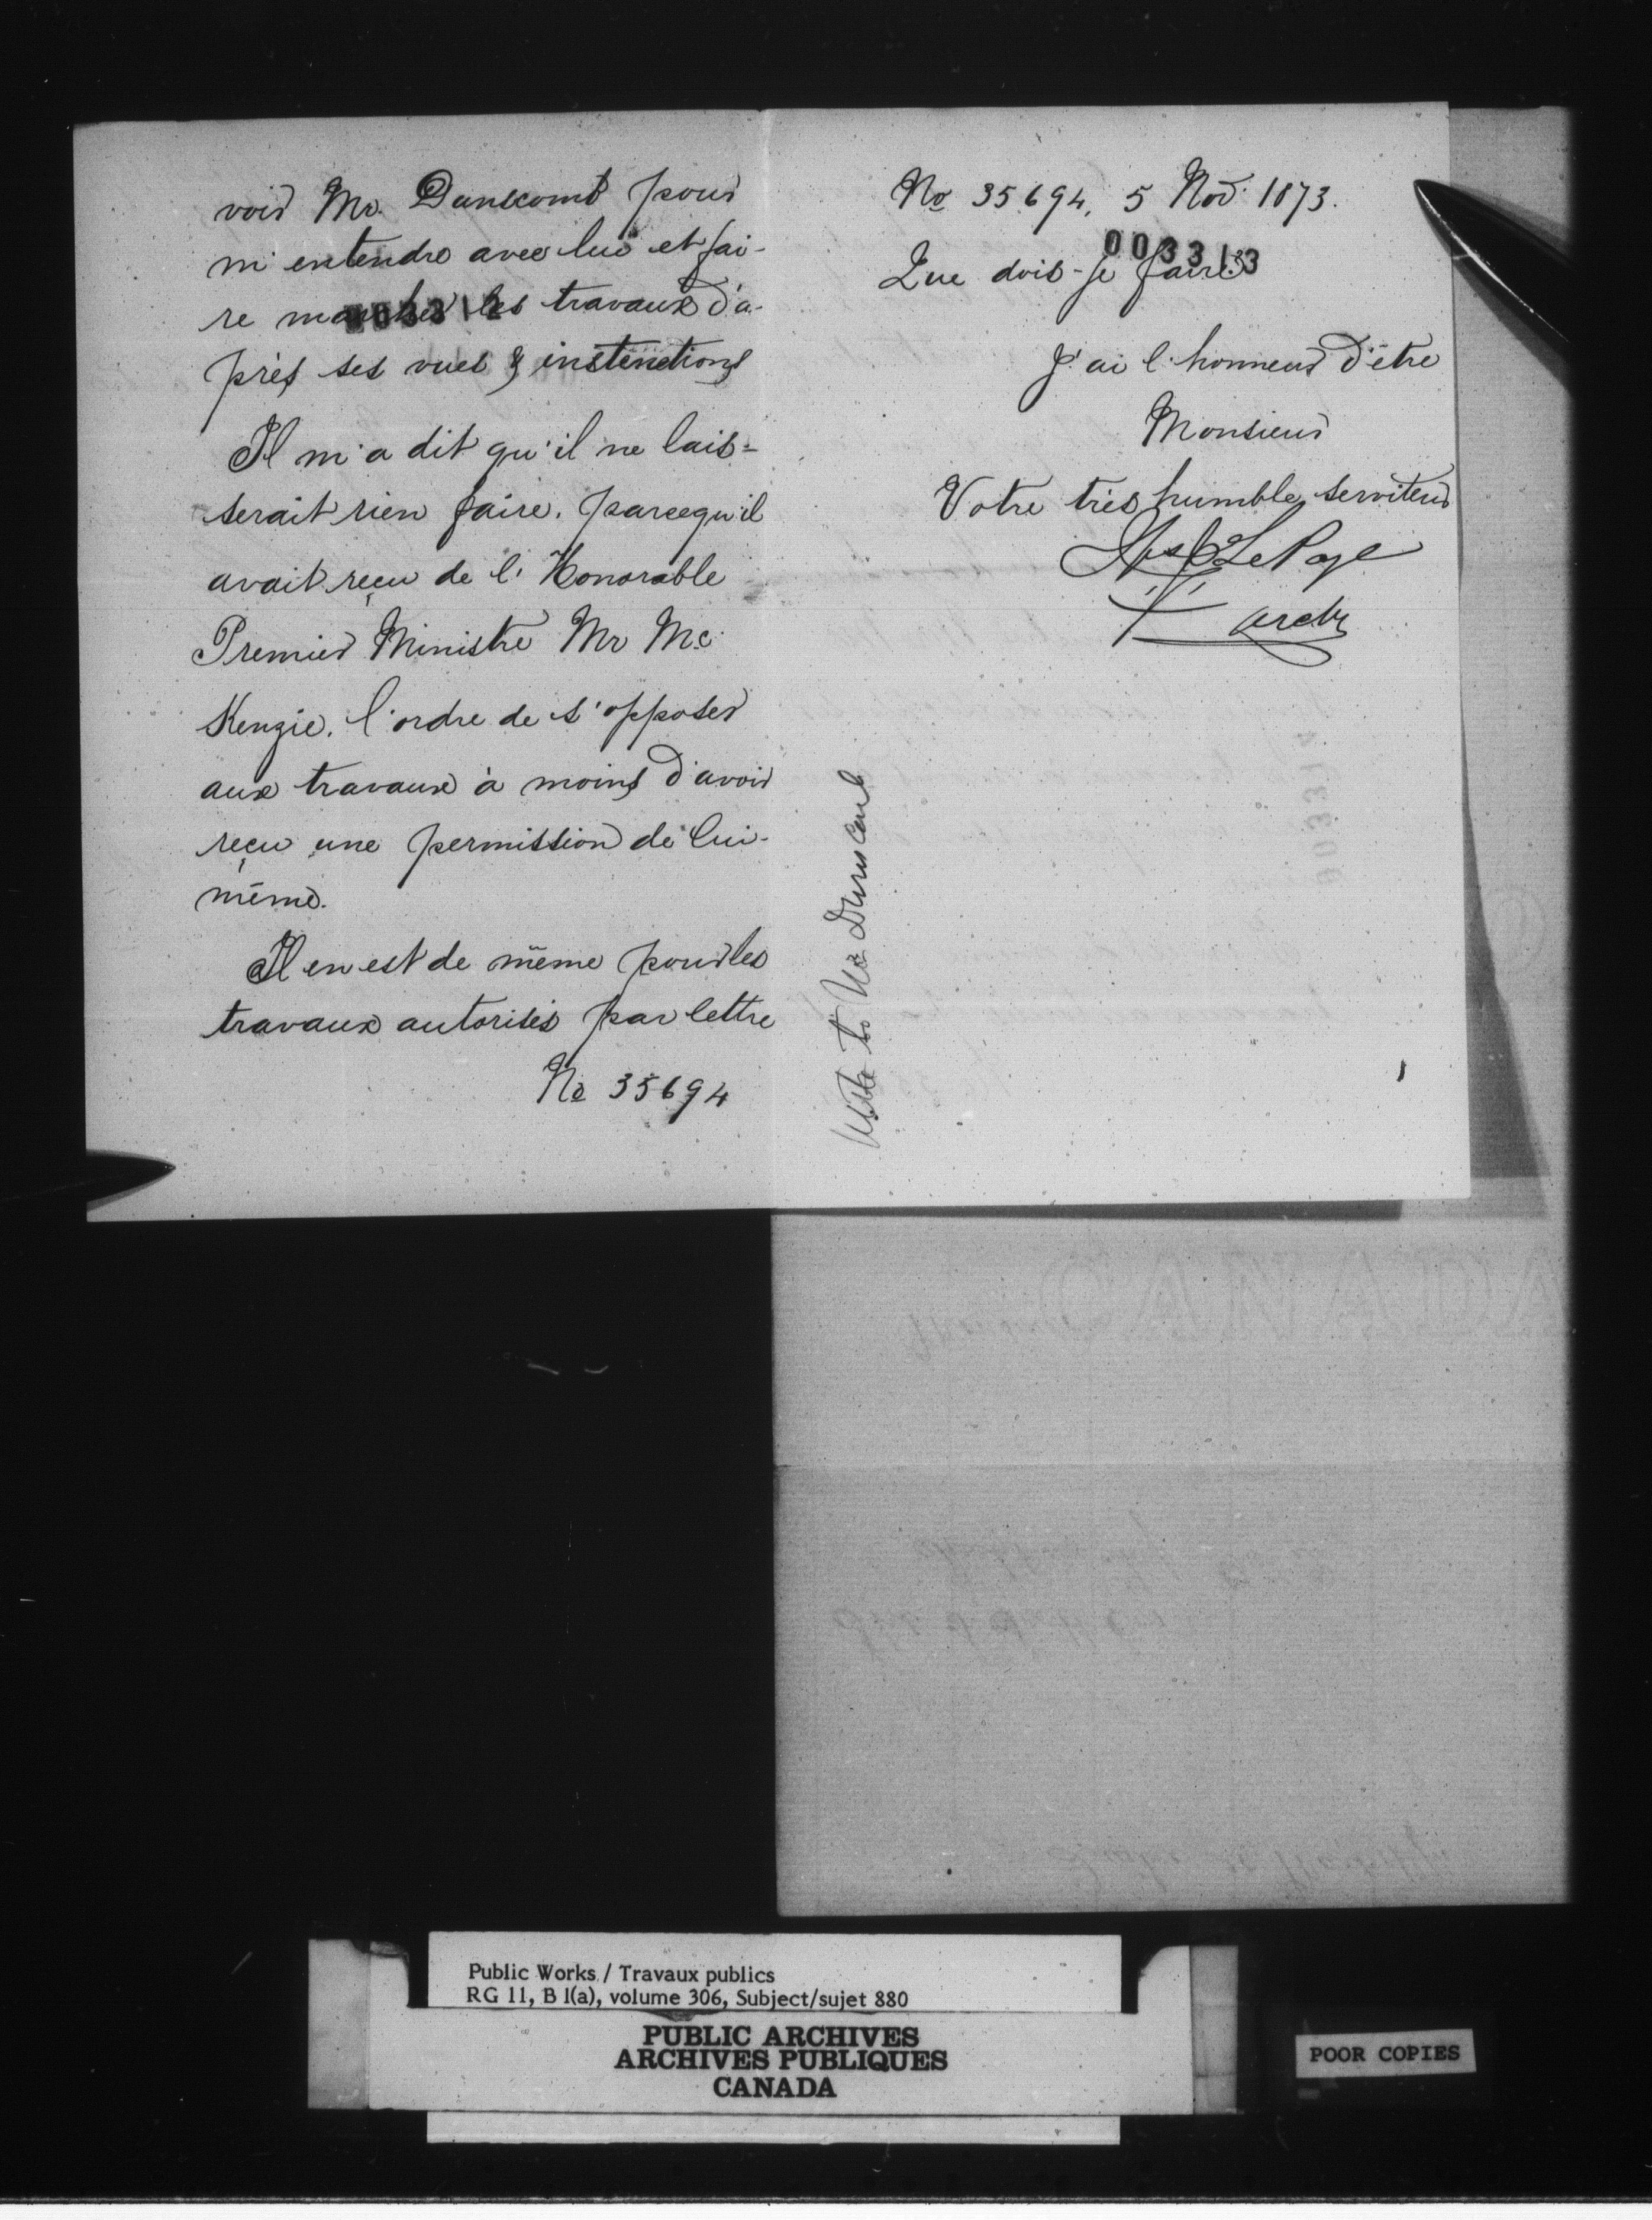 voir Mr. Dunscomb pour
m'entendre avec lui et fai-
re marcher les travaux d'a-
003312
près ses vues & instructions
Il m'a dit qu'il ne lais=
serait rien faire. parcequ'il
avait reçu de l'Honorable
Premier Ministre Mr Mc
Kenzie. l'ordre de s'opposer
aux travaux à moins d'avoir
reçu une permission de lui-
même.
Il en est de même pour les
travaux autorisés par lettre
No 35694
No 35694, 5 Nov. 1873.
003313
Que dois-je faire?
J'ai l'honneur d'être
Monsieur
Votre très humble serviteur
LePage
archt
Write to Mr Dunscomb
003314
Public Works / Travaux publics
RG 11, B 1(a), volume 306, Subject/sujet 880
PUBLIC ARCHIVES
ARCHIVES PUBLIQUES
CANADA
POOR COPIES